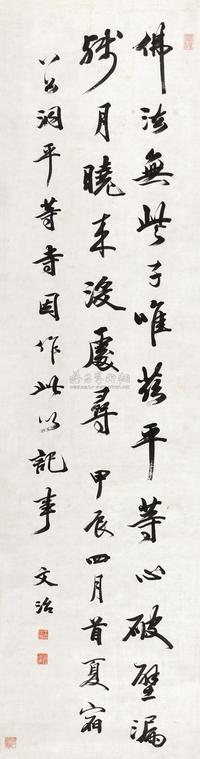 佛法無些子唯茲平等心破壁漏
殘月曉來沒處尋甲辰四月首夏宿
八公洞平等寺因作此以記事 文治